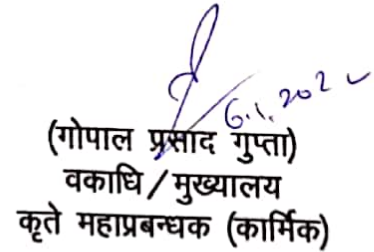 6.1.2022
(गोपाल प्रसाद गुप्ता)
वकाधि / मुख्यालय
कृते महाप्रबन्धक (कार्मिक)